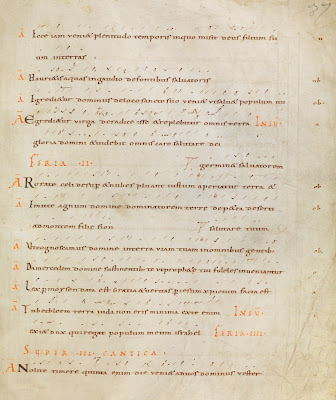 37
A Ecce iam venit plenitudo temporis in quo misit deus filium su
um in terras
A Haurietis aquas in gaudio de fontibus salvatoris
A Egredietur dominus de loco sancto suo veniet ut salvet populum
A Egredietur virga de radice iesse & replebitur omnis terra IN EV
gloria domini & videbit omnis caro salutare dei
FERIA III germinet salvatorem
A Rorate celi desuper & nubes pluant iustum aperiatur terra &
A Emitte agnum domine dominatorem terre de petra deserti
ad montem filie sion salutare tuum
A Ut cognoscamus domine in terra viam tuam in omnibus gentib
A Da mercedem domine sustinentibus te ut prophete tui fideles inveniantur
A Lex per moysen data est gratia & veritas per iesum facta est
A Tu bethleem terra iuda non eris minima ex te enim IN EV
exi& dux qui regat populum meum israhel FERIA IIII
SUPER III CANTICA
A Nolite timere quinta enim die veni& ad vos dominus vester